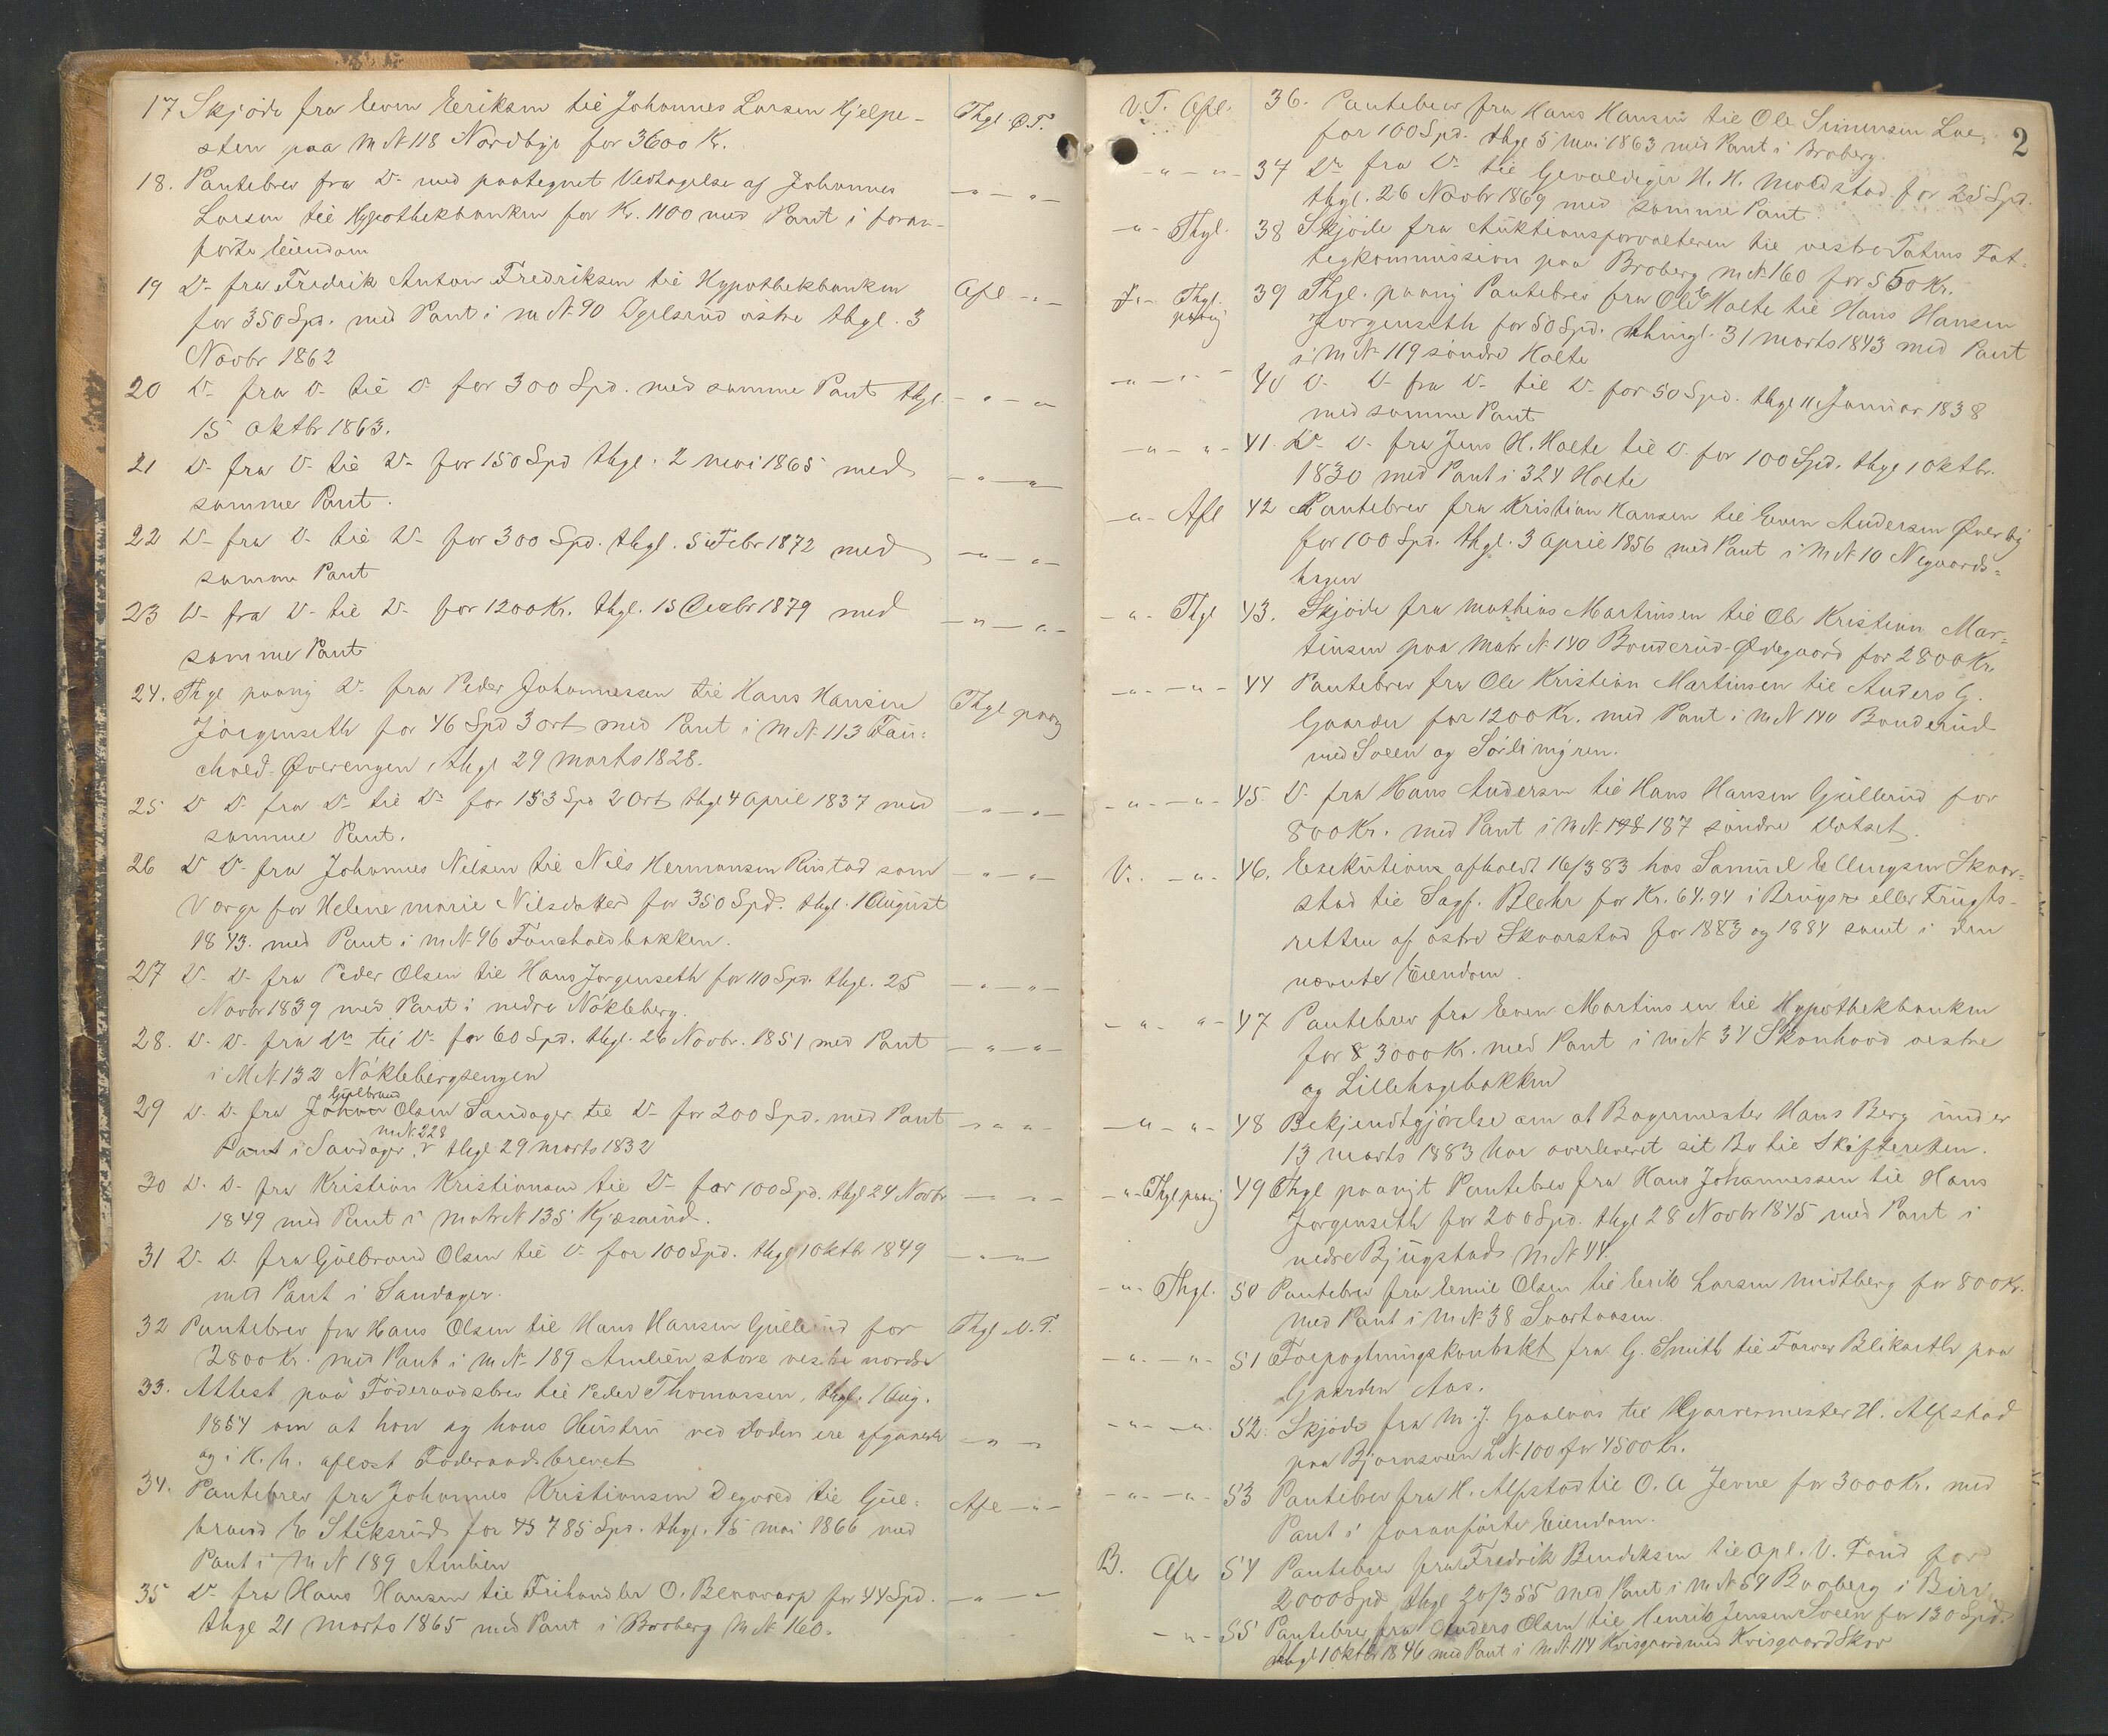 17 Skjøde fra Even Eriksen til Johannes Larsen Hjelpe- Thgl. Ø.T.
sten paa M.N. 118 Nordbye for 3600 Kr.
18. Pantebrev fra D- med paategnet Vedtagelse af Johannes -"-"-
Larsen til Hypothekbanken for Kr. 1100 med Pant i foran-
førte Eiendom
19 D- fra Fredrik Anton Fredriksen til Hypothekbanken Afl -"-
for 350 Spd. med Pant i M.N. 90 Ogelsrud østre thgl. 3
Novbr 1862
20 D- fra D- til D- for 300 Spd. med samme Pant thgl. -"-"-
15 Oktbr 1863.
21 D- fra D- til D- for 150 Spd thgl. 2 Mai 1865 med -"-"-
samme Pant.
22 D- fra D- til D- for 300 Spd. thgl. 5 Febr 1872 med -"-"-
samme Pant
23 D- fra D- til D- for 1200 Kr. thgl. 15 Decbr 1879 med -"-"-
samme Pant
24. Thgl paany D- fra Peder Johannessen til Hans Hansen Thgl paany
Jørgenseth for 46 Spd 3 ort med Pant i M.N. 113 Fau-
chald-Øverengen, thgl 29 Marts 1828.
25 D D- fra D- til D- for 153 Spd 2 Ort thgl 4 April 1837 med -"-"-
samme Pant.
26 D D- fra Johannes Nilsen til Nils Hermansen Rustad som -"-"-
Verge for Helene Marie Nilsdatter for 350 Spd. thgl. 1 August
1843. med Pant i M.N. 96 Fauchaldbakken.
27 D- D- fra Peder Olsen til Hans Jørgenseth for 110 Spd. thgl. 25 -"-"-
Novbr 1839 med Pant i nedre Nøkleberg.
28. D- D- fra D- til D- for 60 Spd. thgl. 26 Novbr. 1851 med Pant -"-"-
i M.N. 132 Nøklebergsengen
Gulbrand
29 D. D. fra Johan Olsen Sandager til D- for 200 Spd. med Pant -"-"-
M.N. 228
Pant i Sandager, thgl 29 Marts 1832
30 D. D- fra Kristian Kristiansen til D- for 100 Spd. thgl 24 Novbr -"-"-
1849 med Pant i Matr N 135 Kjøsrud.
31 D. D. fra Gulbrand Olsen til D- for 100 Spd. thgl 1 Oktbr 1849 -"-"-
med Pant i Sandager.
32 Pantebrev fra Hans Olsen til Hans Hansen Gullerud for Thgl. V.T.
2800 Kr. med Pant i M.N. 189 Amlien store vestre nordre
33. Attest paa Føderaadsbrev til Peder Thomassen, thgl. 1 Aug.
1854 om at han og hans Hustru ved Døden ere afgaaede -"-"-
og i H. h. afløst Føderaadsbrevet
34. Pantebrev fra Johannes Kristiansen Degvold til Gul- Afl -"-
brand E Stiksrud for 785 Spd. thgl. 15 Mai 1866 med
Pant i M N 189 Amlien
35 D- fra Hans Hansen til Frihandler O. Blaavarp for 44 Spd. -"-"-
thgl 21 Marts 1865 med Pant i Braberg M.N. 160.
2
V.T. Afl. 36. Pantebrev fra Hans Hansen til Ole Simensen Lae-
for 100 Spd. thgl 5 Mai 1863 med Pant i Broberg.
-"-"- 37 D- fra D- til Gevaldiger H. H. Moldstad for 25 Spd.
thgl. 26 Novbr 1869 med samme Pant.
-"- Thgl. 38 Skjøde fra Auktionsforvalteren til vestre Totens Fat-
tigkommission paa Broberg M.N. 160 for 550 Kr.
-"- Thgl. paany 39 Thgl. paany Pantebrev fra Ole Holte til Hans Hansen
Jørgenseth for 50 Spd. thingl. 31 Marts 1843 med Pant
i M.N. 119 søndre Holte
-"-"- 40 D- D- fra D- til D- for 50 Spd. thgl 11 Januar 1838
med samme Pant
-"-"- 41. D- D- fra Jens H. Holte til D. for 100 Spd. thgl 1 Oktbr.
1830 med Pant i 324 Holte
-"- Afl 42 Pantebrev fra Kristian Hansen til Even Andersen Øverby
for 100 Spd. thgl. 3 April 1856 med Pant i M.N. 10 Negaards-
hagen
-"- Thgl 43. Skjøde fra Mathias Martinsen til Ole Kristian Mar-
tinsen paa Matr N. 140 Bonderud-Ødegaard for 2800 Kr.
-"-"- 44 Pantebrev fra Ole Kristian Martinsen til Anders G.
Gaarder for 1200 Kr. med Pant i M.N 140 Bonderud
med Sveen og Sørlimyren.
-"-"- 45. D- fra Hans Andersen til Hans Hansen Gullerud for
800 Kr. med Pant i M.N. 187 søndre Dotset.
V. -"- 46. Exekution afholdt 16/3 83 hos Samuel Ellingsen Skaar-
stad til Sagf. Blehr for Kr. 64.94 i Brugs- eller Frugts-
retten af østre Skaarstad for 1883 og 1884 samt i den
nævnte Eiendom.
-"-"- 47 Pantebrev fra Even Martinsen til Hypothekbanken
for 3000 Kr. med Pant i M.N. 34 Skonhovd vestre
og Lillehagebakken
-"-"- 48 Bekjendtgjørelse om at Bagermester Hans Berg under
13 Marts 1883 har overleveret sit Bo til Skifteretten.
-"- Thgl paany 49 Thgl paanyt Pantebrev fra Hans Johannessen til Hans
Jørgenseth for 200 Spd. thgl 28 Novbr 1845 med Pant i
nedre Bjugstad M.N. 44.
-"- Thgl. 50 Pantebrev fra Emil Olsen til Erik Larsen Midtberg for 800 Kr.
med Pant i M.N. 38 Svartaasen.
-"-"- 51 Forpagtningskontrakt fra G. Smith til Farver Blikarth paa
Gaarden Aas.
-"-"- 52. Skjøde fra M. J. Gaalaas til Garvermester H. Alfstad
paa Bjørnsveen L.N. 100 for 4500 Kr.
-"-"- 53 Pantebrev fra H. Alfstad til O. A Jevne for 3000 Kr. med
Pant i foranførte Eiendom.
B. Afl 54 Pantebrev fra Fredrik Bendiksen til Opl. V. Fond for
2000 Spd thgl 20/3 55 med Pant i M.N 59 Braaberg i Biri
-"- 55 Pantebrev fra Anders Olsen til Henrik Jensen Sveen for 130 Spd.
thgl 1 Oktbr 1846 med Pant i M.N 114 Kvisgaard med Kvisgaard Skov